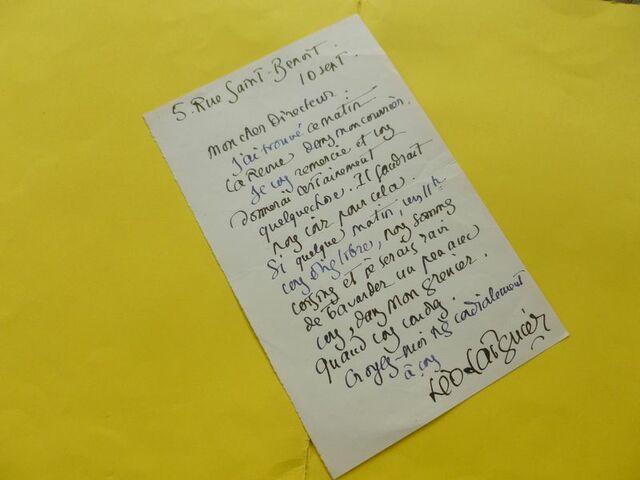 5. Rue Saint-Benoit.
10 Sept.
Mon cher Directeur.
J'ai trouvé ce matin
La Revue dans mon courrier.
Je vous remercie et vous
donnerai certainement
quelquechose. Il faudrait
nous voir pour cela.
Si quelque matin, vers 11 h.
vous êtes libre, nous sommes
voisins et je serais ravi
de bavarder un peu avec
vous, dans mon grenier.
Quand vous voudrez.
Croyez-moi très cordialement
à vous
Léo Larguier